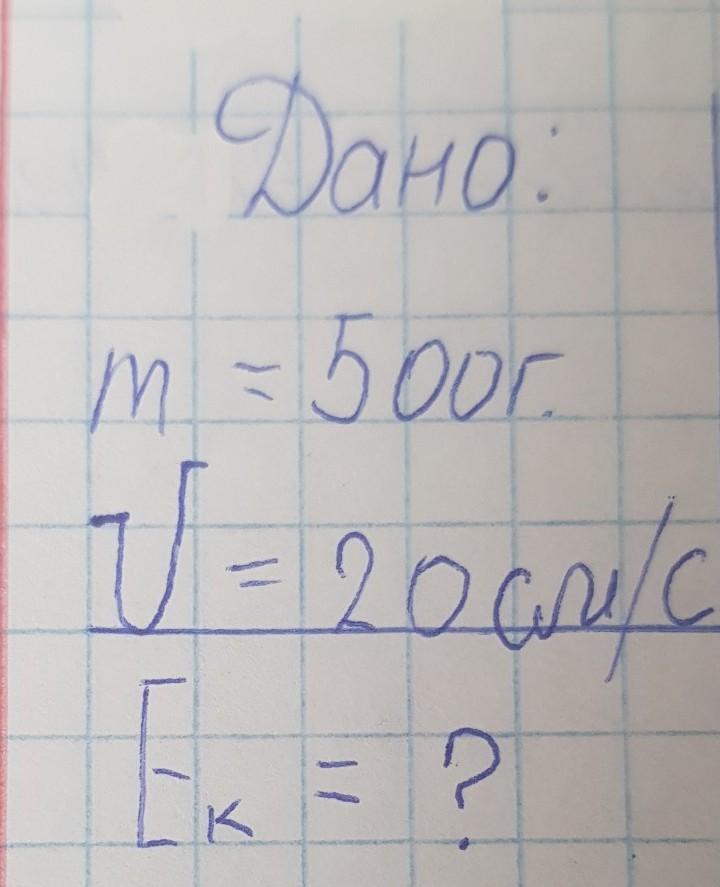 Дано:
m = 500г.
V = 20 см/с
Eк = ?